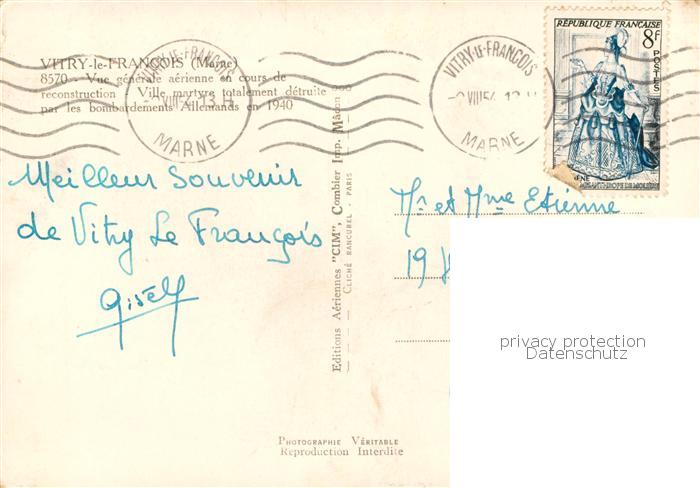 VITRY-le-FRANÇOIS (Marne)
8570 - Vue générale aérienne en cours de
reconstruction - Ville martyre totalement détruite
par les bombardements Allemands en 1940
VITRY-LE-FRANÇOIS
13 H
MARNE
VITRY-LE-FRANÇOIS
VIII 54
MARNE
RÉPUBLIQUE FRANÇAISE
8F
POSTES
MISANTHROPE DE MOLIÈRE
Meilleur Souvenir
de Vitry Le François
Editions Aériennes "CIM", Combier Imp. Mâcon
CLICHÉ RANCUREL - PARIS
Mr et Mme Etienne
19
privacy protection
Datenschutz
PHOTOGRAPHIE VÉRITABLE
Reproduction Interdite